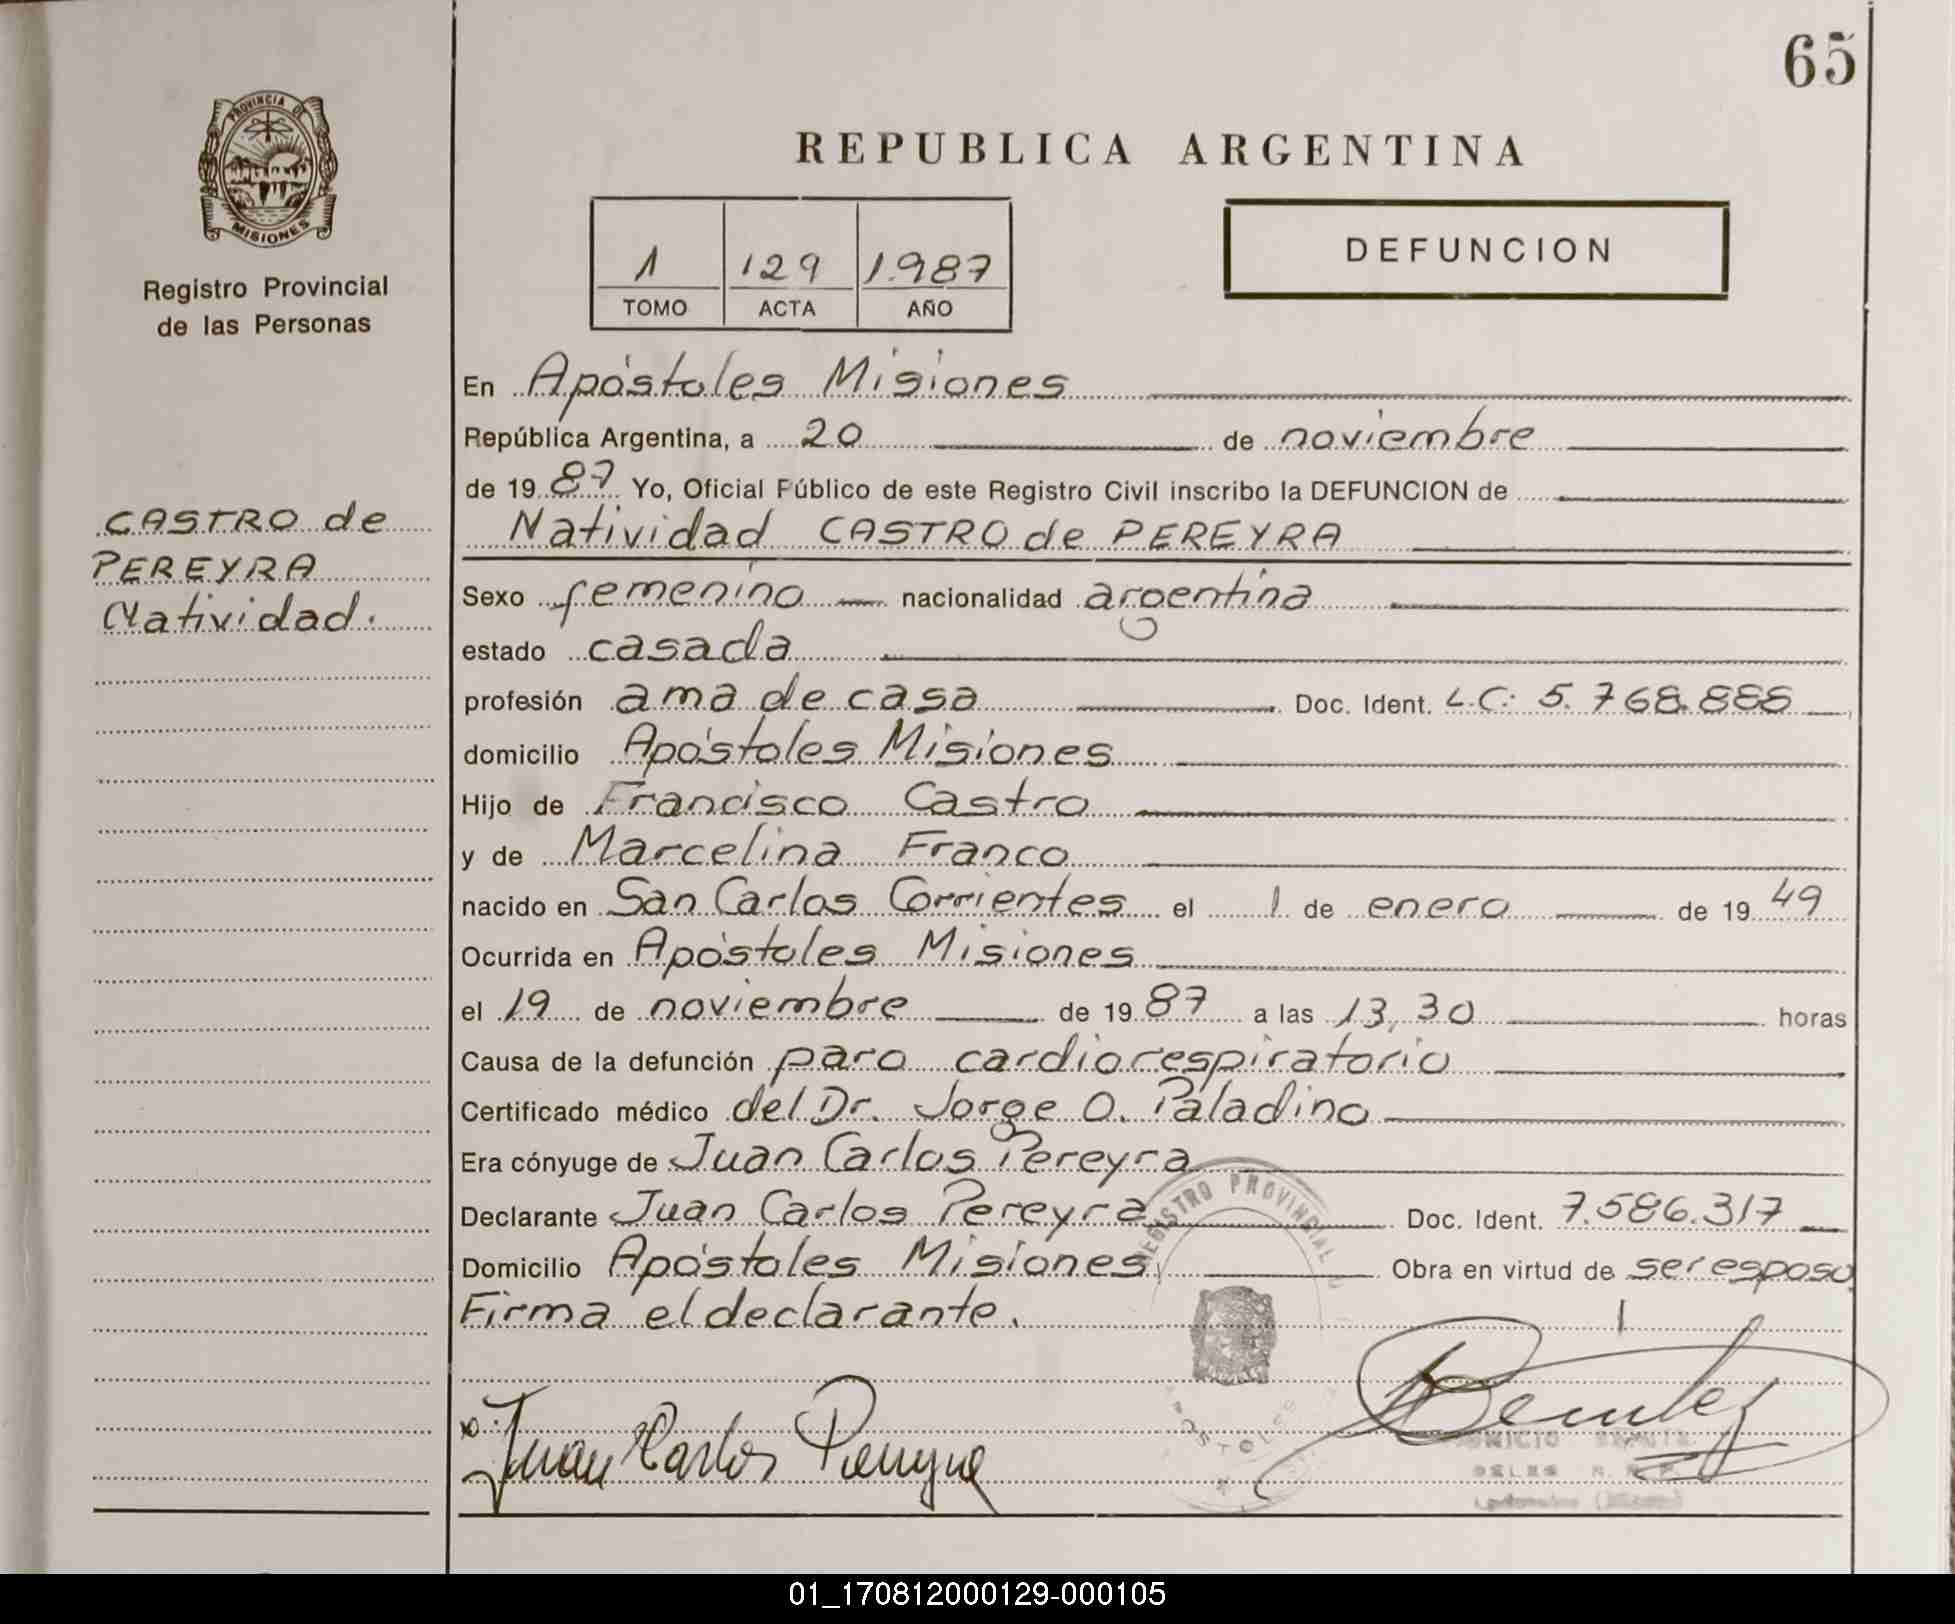 65
PROVINCIA DE
MISIONES
Registro Provincial
de las Personas
REPUBLICA ARGENTINA
1 129 1.987
TOMO ACTA AÑO
DEFUNCION
CASTRO de
PEREYRA
Natividad.
En Apóstoles Misiones
República Argentina, a 20 de noviembre
de 19 87 Yo, Oficial Público de este Registro Civil inscribo la DEFUNCION de
Natividad CASTRO de PEREYRA
Sexo femenino nacionalidad argentina
estado casada
profesión ama de casa Doc. Ident. L.C: 5.768.888
domicilio Apóstoles Misiones
Hijo de Francisco Castro
y de Marcelina Franco
nacido en San Carlos Corrientes el 1 de enero de 19 49
Ocurrida en Apóstoles Misiones
el 19 de noviembre de 19 87 a las 13,30 horas
Causa de la defunción paro cardiorespiratorio
Certificado médico del Dr. Jorge O. Paladino
Era cónyuge de Juan Carlos Pereyra
Declarante Juan Carlos Pereyra Doc. Ident. 7.586.317
Domicilio Apóstoles Misiones Obra en virtud de ser esposo
Firma el declarante.
REGISTRO PROVINCIAL
Juan Carlos Pereyra
01_170812000129-000105